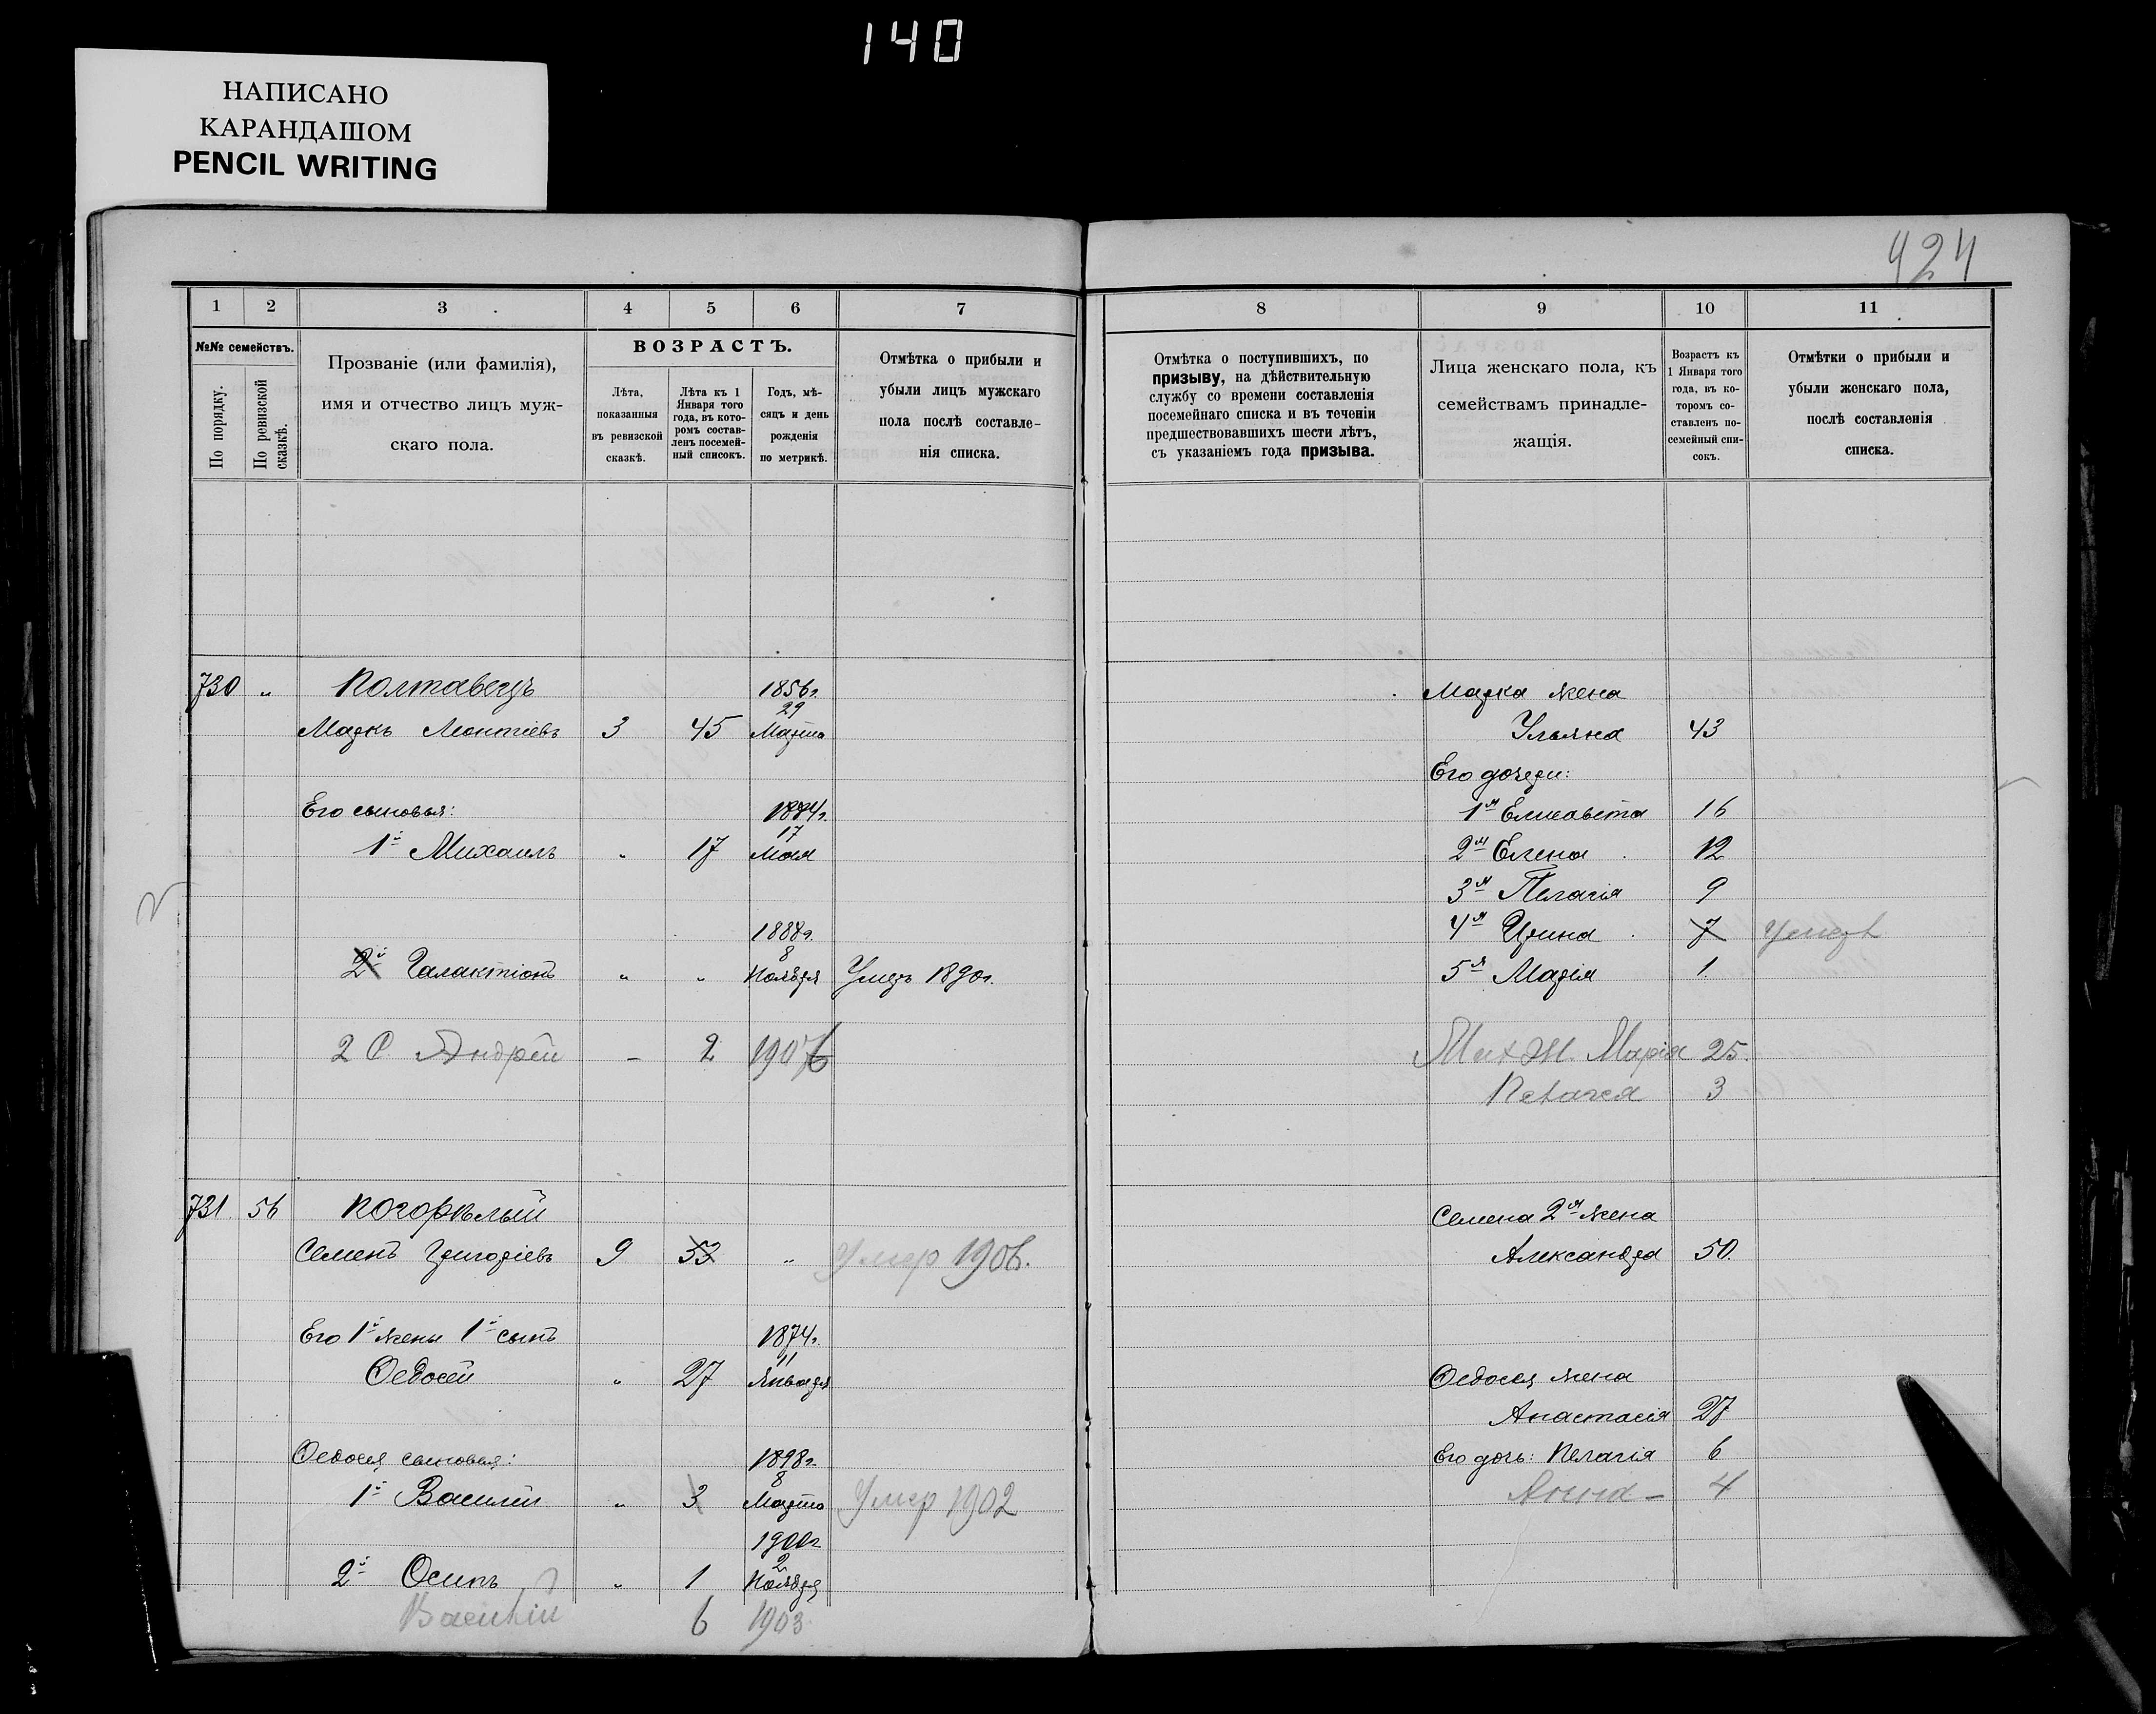 140
НАПИСАНО
КАРАНДАШОМ
PENCIL WRITING
424
1 2 3 4 5 6 7
№№ семействъ.
По порядку.
По ревизской сказкѣ.
Прозваніе (или фамилія),
имя и отчество лицъ муж-
скаго пола.
ВОЗРАСТЪ.
Лѣта,
показанныя
въ ревизской
сказкѣ.
Лѣта къ 1
Января того
года, въ кото-
ромъ состав-
ленъ посемей-
ный списокъ.
Годъ, мѣ-
сяцъ и день
рожденія
по метрикѣ.
Отмѣтка о прибыли и
убыли лицъ мужскаго
пола послѣ составле-
нія списка.
730 „ Полтавецъ 1856г.
29
Маркъ Леонтіевъ 3 45 Марта
Его сыновья: 1884г.
17
1й Михаилъ „ 17 Мая
1888г.
8
2й Галактіонъ „ „ Ноября Умеръ 1890г.
2 С Андрей – 2 1906
731 56 Погорѣлый
Семенъ Григоріевъ 9 53 „ Умер 1906.
Его 1й жены 1й сынъ 1874г.
11
Ѳедосей „ 27 Января
Ѳедосея сыновья: 1898г.
8
1й Василій „ 3 Марта Умер 1902
1900г
2
2й Осипъ „ 1 Ноября
Василий 6 1903
8 9 10 11
Отмѣтка о поступившихъ, по
призыву, на дѣйствительную
службу со времени составленія
посемейнаго списка и въ теченіи
предшествовавшихъ шести лѣтъ,
съ указаніемъ года призыва.
Лица женскаго пола, къ
семействамъ принадле-
жащія.
Возрастъ къ
1 Января того
года, въ ко-
торомъ со-
ставленъ по-
семейный спи-
сокъ.
Отмѣтки о прибыли и
убыли женскаго пола,
послѣ составленія
списка.
Марка жена
Ульяна 43
Его дочери:
1я Елисавета 16
2я Елена 12
3я Пелагія 9
4я Ирина 7
5я Марія 1
Мих ж. Марія 25.
Пелагея 3
Семена 2я жена
Александра 50.
Ѳедосея жена
Анастасія 27
Его дочь: Пелагія 6
Анна – 4